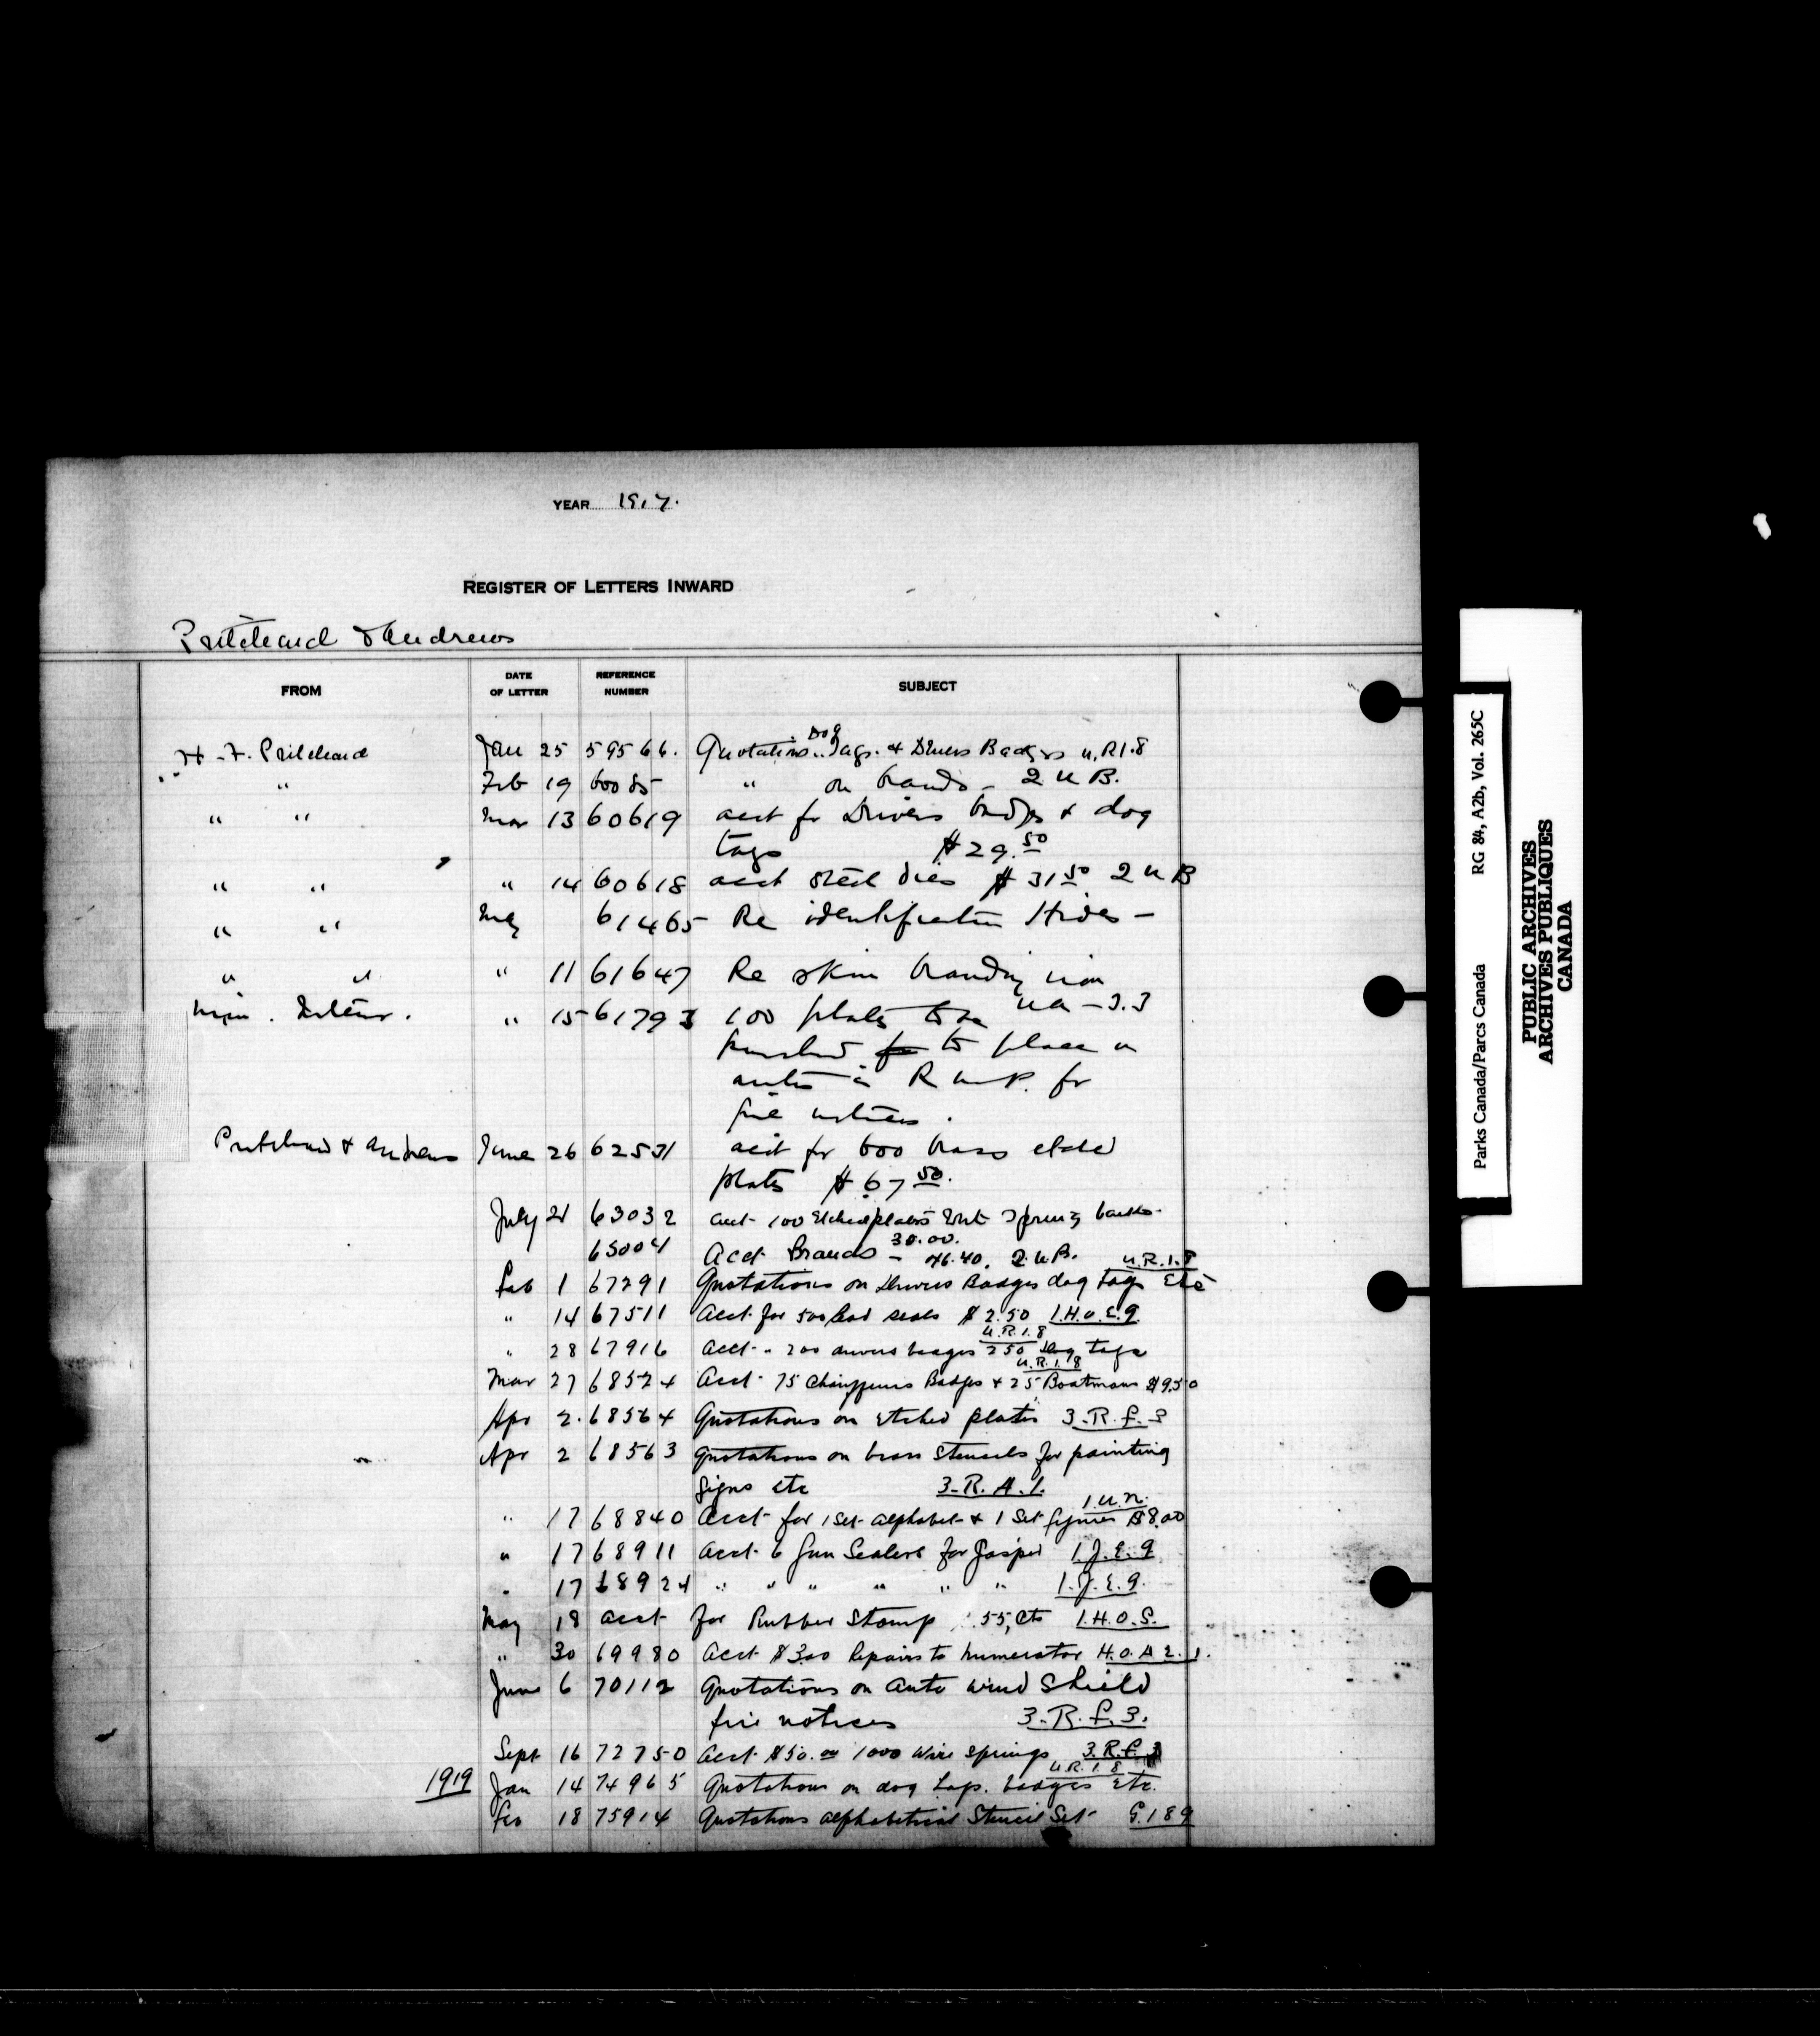 YEAR 1917.
REGISTER OF LETTERS INWARD
Pritchard & Andrews
FROM DATE OF LETTER REFERENCE NUMBER SUBJECT
H. F. Pritchard Jan 25 59566. Quotations Dog Tags. & Drivers Badges U.R1.8
" Feb 19 60085 " on brands - 2 U B.
" " Mar 13 60619 acct for Drivers badges & dog
tags $29.50
" " " 14 60618 acct steel dies $31.50 2 U B
" " May 61465 Re identification Hides -
" " " 11 61647 Re skin branding iron
" 15 61793 100 plates to be UA - 3.3
to place on
autos in R M P. for
fire notices.
Pritchard & Andrews June 26 62531 acct for 600 brass etched
plates $67.50.
July 21 63032 acct 100 Etched plates with Spring backs.
30.00.
65004 Acct Brands - 46.40. 2.U.B. U.R.1.8
Feb 1 67291 Quotations on Drivers Badges dog tags Etc
" 14 67511 Acct for 500 lead seals $2.50 1.H.O.E.9.
U.R.1.8
" 28 67916 Acct " 200 drivers badges 250 dog tags
U.R.1.8
Mar 27 68524 Acct 75 Chauffeurs Badges & 25 Boatmans $19.50
Apr 2. 68564 Quotations on etched plates 3.R.F.3
" Apr 2 68563 Quotations on brass Stencils for painting
signs etc 3.R.A.1.
1.U.N.
" 17 68840 Acct for 1 Set alphabet & 1 Set figures $8.00
" 17 68911 Acct 6 Gun Sealers for Jasper 1.J.E.9
" 17 68924 " " " " " " 1.J.E.9.
May 18 acct for Rubber Stamp .55, Cts 1.H.O.S.
" 30 69980 Acct $3.00 Repairs to numerator H.O.A 2.1.
June 6 70112 Quotations on Auto wind Shield
fire notices 3.R.F.3.
Sept 16 72750 Acct $50.00 1000 wire springs 3.R.F.3
U.R.1.8
1919 Jan 14 74965 Quotations on dog tags. badges Etc.
Feb 18 75914 Quotations alphabetical Stencil Set G.189
Parks Canada/Parcs Canada RG 84, A2b, Vol. 265C
PUBLIC ARCHIVES
ARCHIVES PUBLIQUES
CANADA